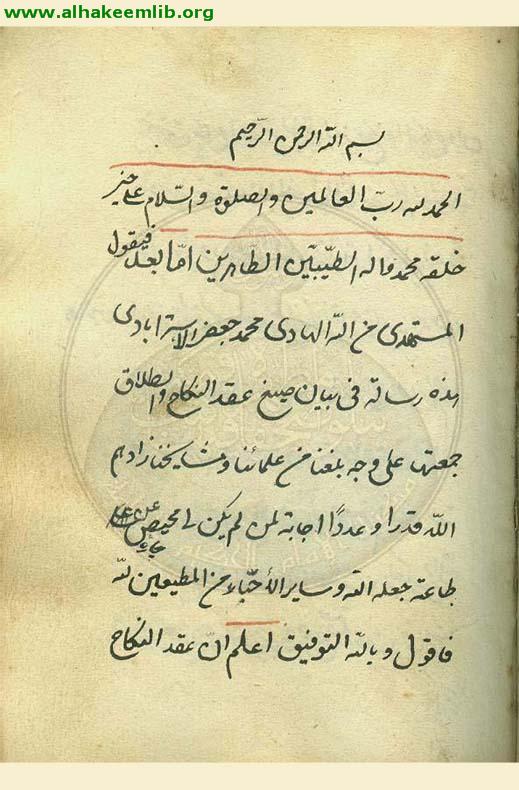 www.alhakeemlib.org
بسم الله الرحمن الرّحيم
الحمد لله ربّ العالمين والصلوة والسّلام على خير
خلقه محمد واله الطيّبين الطّاهرين امّا بعد فيقول
المستهدى من الله الهادى محمد جعفر الاسترابادى
هذه رسالة فى بيان صيغ عقد النكاح والطلاق
جمعتها على وجه بلغنا من علمائنا ومشايخنا زادهم
الله قدرا وعددًا اجابة لمن لم يكن لى محيص عن
طاعته جعله الله وساير الأحبّاء من المطيعين لله
فاقول وبالله التوفيق اعلم انّ عقد النكاح